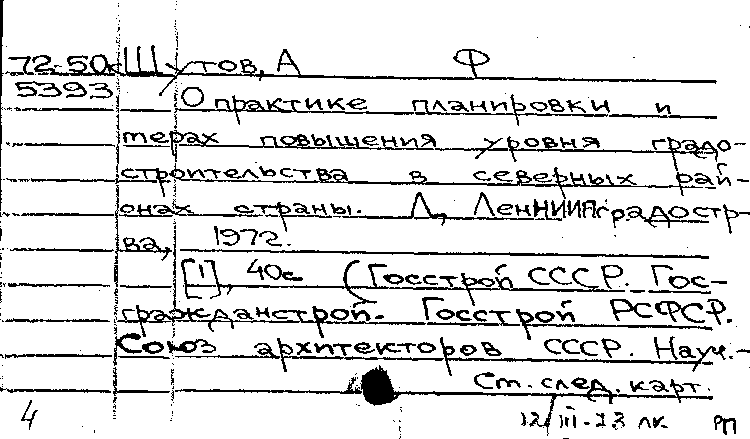 72-50к Шутов, А Ф
5393 О практике планировки и
терах повышения уровня градо-
строительства в северных рай-
онах страны. Л, ЛенНИИПградостр-
ва, 1972.
[1], 40с (Госстрой СССР. Гос-
гражданстрой. Госстрой РСФСР.
Союз архитекторов СССР. Науч.-
См. след. карт.
4 12/III-73 лк. РП